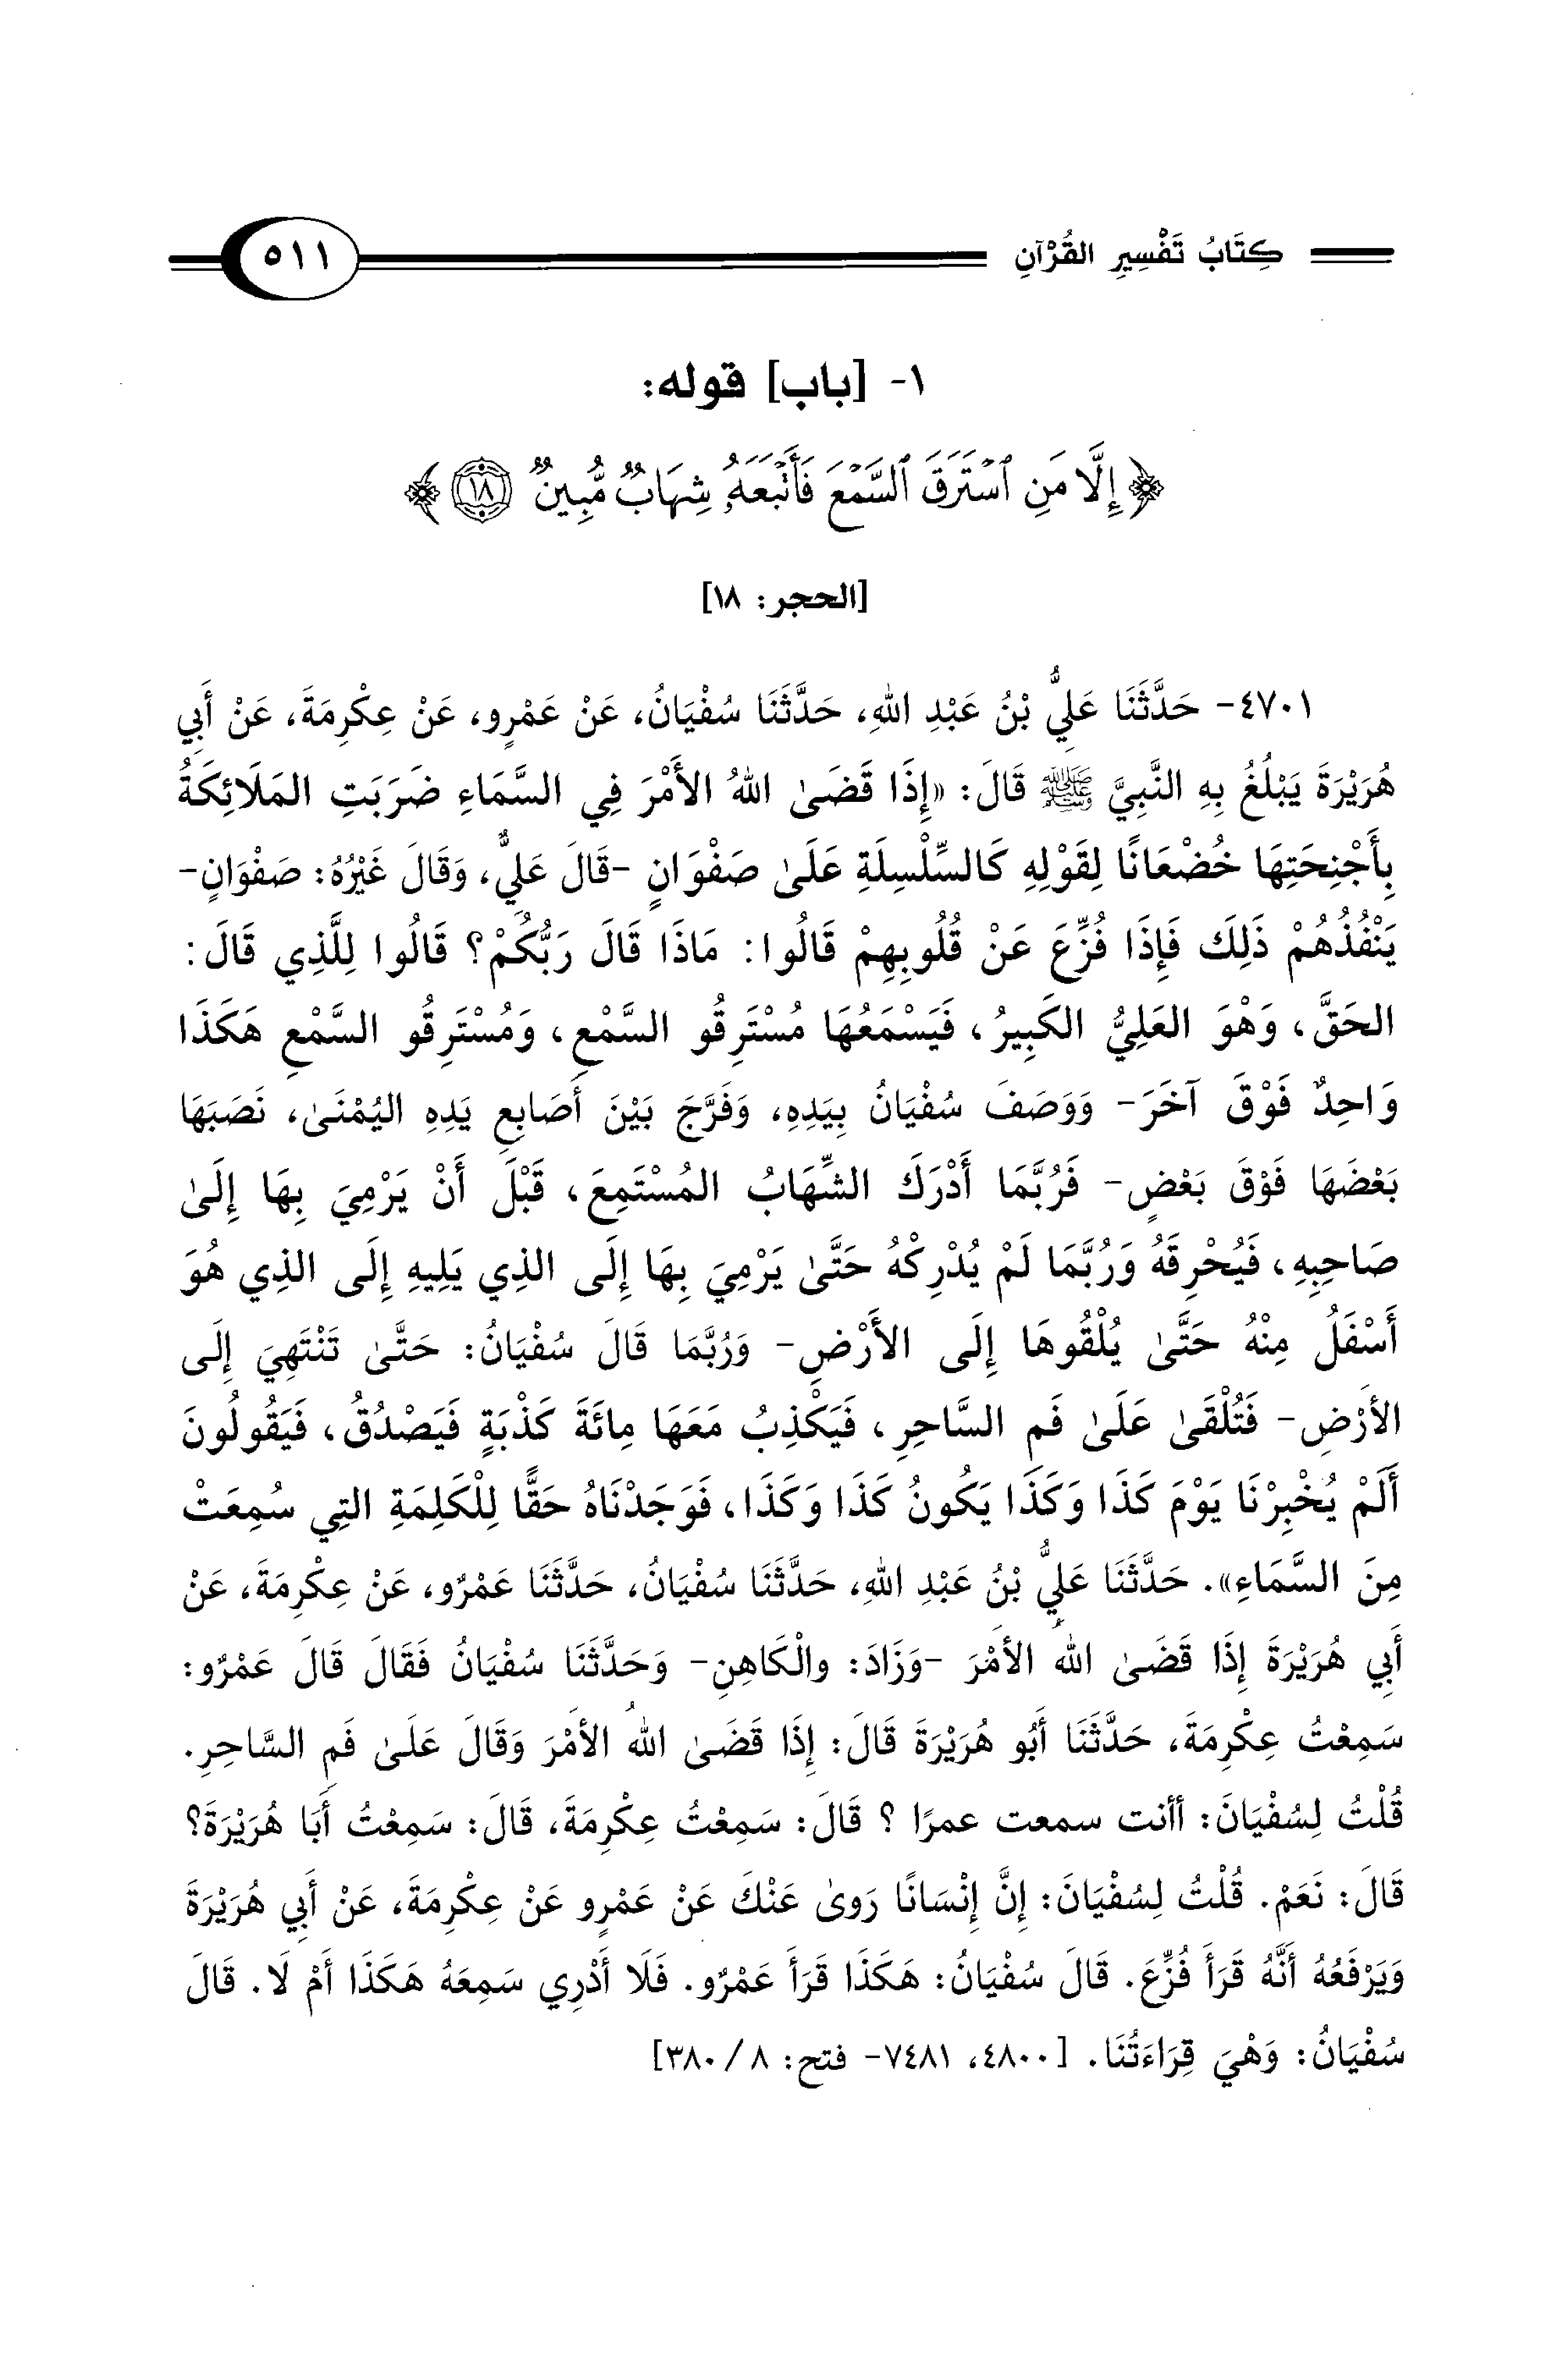 كِتَابُ تَفْسِيرِ القُرْآنِ ٥١١
١- [باب] قوله:
﴿إِلَّا مَنِ ٱسْتَرَقَ ٱلسَّمْعَ فَأَتْبَعَهُۥ شِهَابٌ مُّبِينٌ ١٨﴾
[الحجر: ١٨]
٤٧٠١- حَدَّثَنَا عَلِيُّ بْنُ عَبْدِ اللهِ، حَدَّثَنَا سُفْيَانُ، عَنْ عَمْرٍو، عَنْ عِكْرِمَةَ، عَنْ أَبِي
هُرَيْرَةَ يَبْلُغُ بِهِ النَّبِيَّ ﷺ قَالَ: «إِذَا قَضَىٰ اللهُ الأَمْرَ فِي السَّمَاءِ ضَرَبَتِ المَلَائِكَةُ
بِأَجْنِحَتِهَا خُضْعَانًا لِقَوْلِهِ كَالسِّلْسِلَةِ عَلَىٰ صَفْوَانٍ -قَالَ عَلِيٌّ، وَقَالَ غَيْرُهُ: صَفْوَانٍ-
يَنْفُذُهُمْ ذَلِكَ فَإِذَا فُزِّعَ عَنْ قُلُوبِهِمْ قَالُوا: مَاذَا قَالَ رَبُّكُمْ؟ قَالُوا لِلَّذِي قَالَ:
الحَقَّ، وَهْوَ العَلِيُّ الكَبِيرُ، فَيَسْمَعُهَا مُسْتَرِقُو السَّمْعِ، وَمُسْتَرِقُو السَّمْعِ هَكَذَا
وَاحِدٌ فَوْقَ آخَرَ- وَوَصَفَ سُفْيَانُ بِيَدِهِ، وَفَرَّجَ بَيْنَ أَصَابِعِ يَدِهِ اليُمْنَىٰ، نَصَبَهَا
بَعْضَهَا فَوْقَ بَعْضٍ- فَرُبَّمَا أَدْرَكَ الشِّهَابُ المُسْتَمِعَ، قَبْلَ أَنْ يَرْمِيَ بِهَا إِلَىٰ
صَاحِبِهِ، فَيُحْرِقَهُ وَرُبَّمَا لَمْ يُدْرِكْهُ حَتَّىٰ يَرْمِيَ بِهَا إِلَى الذِي يَلِيهِ إِلَى الذِي هُوَ
أَسْفَلُ مِنْهُ حَتَّىٰ يُلْقُوهَا إِلَى الأَرْضِ- وَرُبَّمَا قَالَ سُفْيَانُ: حَتَّىٰ تَنْتَهِيَ إِلَى
الأَرْضِ- فَتُلْقَىٰ عَلَىٰ فَمِ السَّاحِرِ، فَيَكْذِبُ مَعَهَا مِائَةَ كَذْبَةٍ فَيَصْدُقُ، فَيَقُولُونَ
أَلَمْ يُخْبِرْنَا يَوْمَ كَذَا وَكَذَا يَكُونُ كَذَا وَكَذَا، فَوَجَدْنَاهُ حَقًّا لِلْكَلِمَةِ التِي سُمِعَتْ
مِنَ السَّمَاءِ». حَدَّثَنَا عَلِيُّ بْنُ عَبْدِ اللهِ، حَدَّثَنَا سُفْيَانُ، حَدَّثَنَا عَمْرٌو، عَنْ عِكْرِمَةَ، عَنْ
أَبِي هُرَيْرَةَ إِذَا قَضَىٰ اللهُ الأَمْرَ -وَزَادَ: والْكَاهِنِ- وَحَدَّثَنَا سُفْيَانُ فَقَالَ قَالَ عَمْرٌو:
سَمِعْتُ عِكْرِمَةَ، حَدَّثَنَا أَبُو هُرَيْرَةَ قَالَ: إِذَا قَضَىٰ اللهُ الأَمْرَ وَقَالَ عَلَىٰ فَمِ السَّاحِرِ.
قُلْتُ لِسُفْيَانَ: أأنت سمعت عمرًا ؟ قَالَ: سَمِعْتُ عِكْرِمَةَ، قَالَ: سَمِعْتُ أَبَا هُرَيْرَةَ؟
قَالَ: نَعَمْ. قُلْتُ لِسُفْيَانَ: إِنَّ إِنْسَانًا رَوىٰ عَنْكَ عَنْ عَمْرٍو عَنْ عِكْرِمَةَ، عَنْ أَبِي هُرَيْرَةَ
وَيَرْفَعُهُ أَنَّهُ قَرَأَ فُزِّعَ. قَالَ سُفْيَانُ: هَكَذَا قَرَأَ عَمْرٌو. فَلَا أَدْرِي سَمِعَهُ هَكَذَا أَمْ لَا. قَالَ
سُفْيَانُ: وَهْيَ قِرَاءَتُنَا. [٤٨٠٠، ٧٤٨١- فتح: ٨ /٣٨٠]